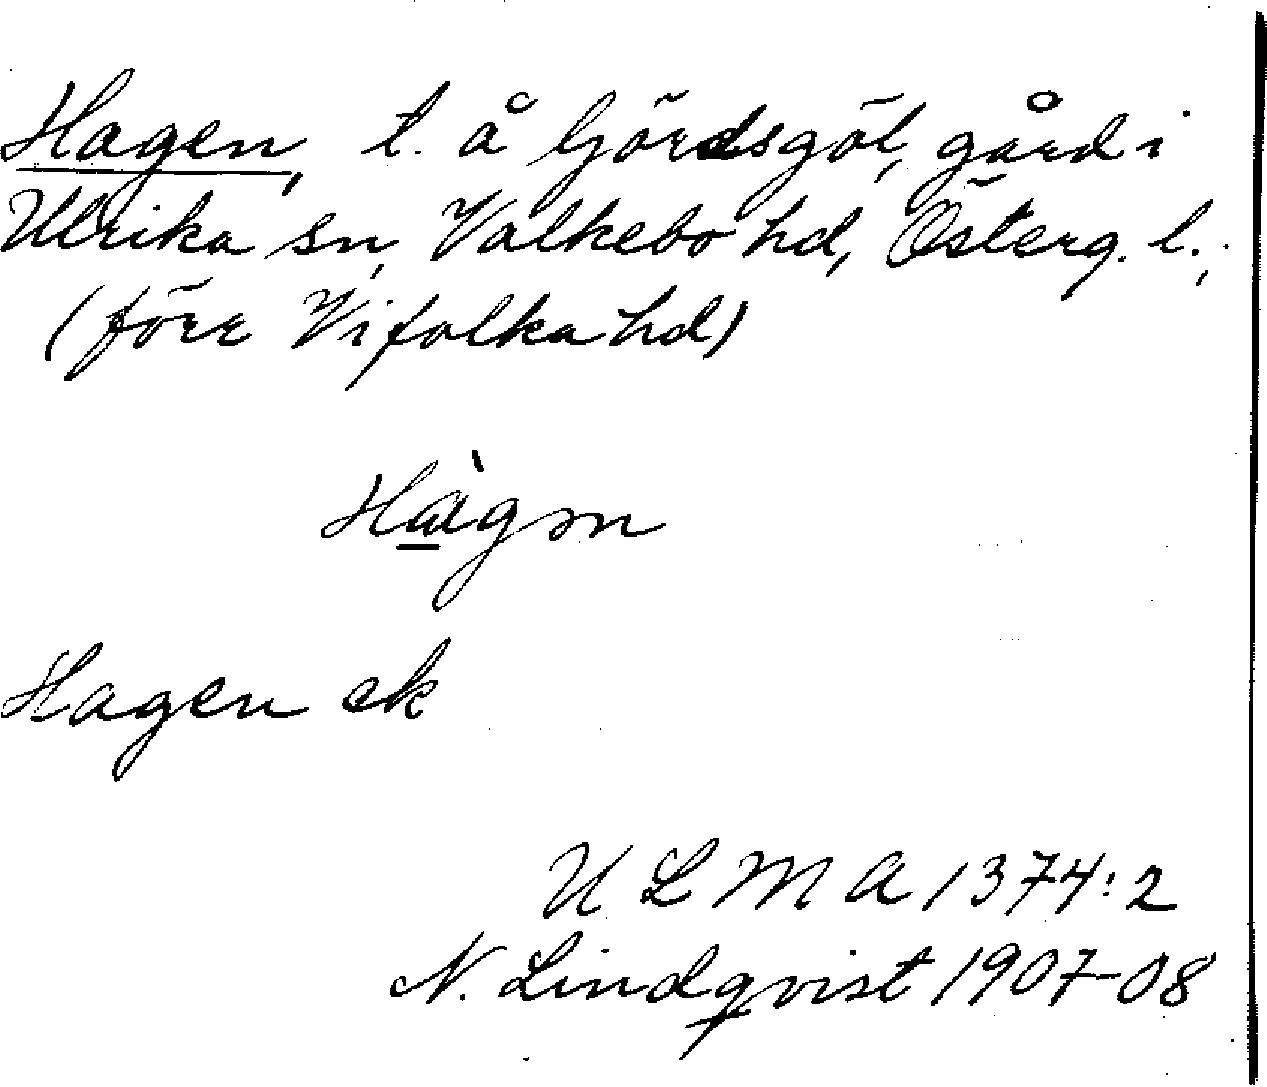 Hagen, t. å Gördsgöl, gård i
Ulrika sn, Valkebo hd, Österg. l.,
(förr Vifolka hd)
Hàgən
Hagen ek
ULMA 1374:2
N. Lindqvist 1907-08